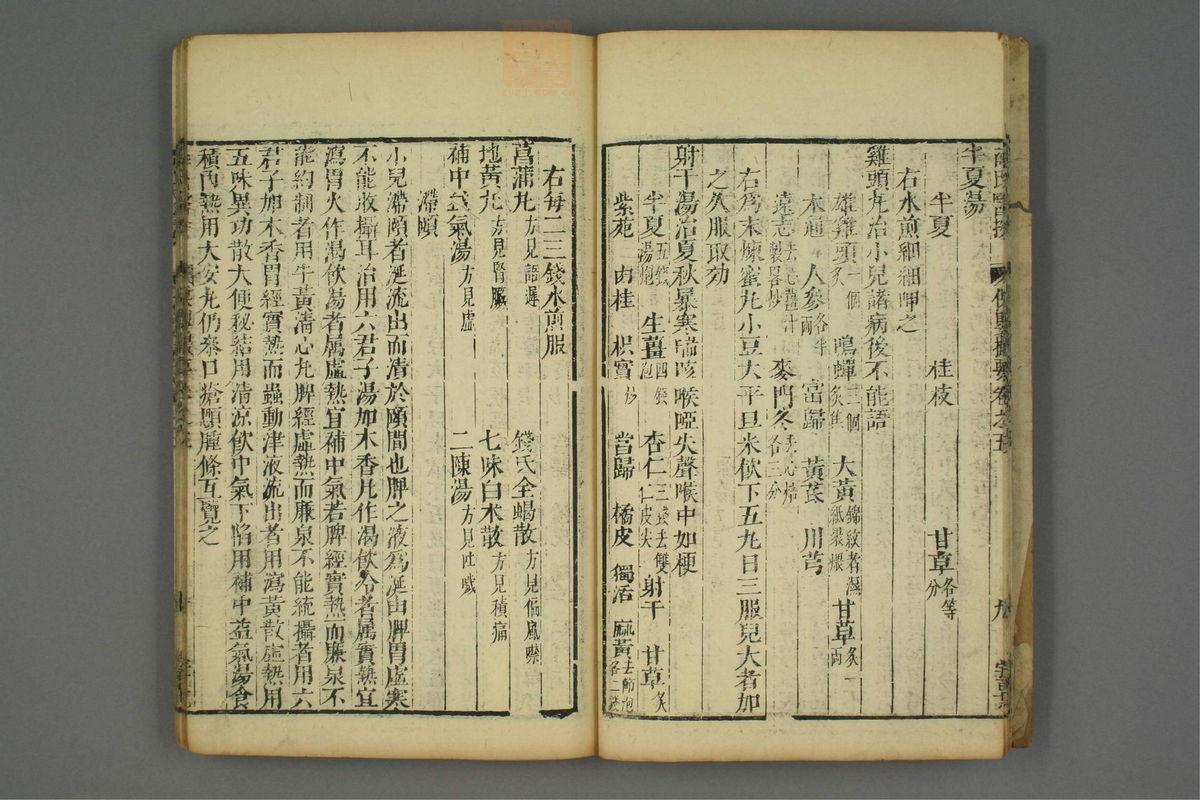 半夏湯
半夏 桂枝 甘草各等分
右水煎細細呷之
雞頭丸治小兒諸病後不能語
雄雞頭一個炙 鳴蟬三個炙焦 大黃錦紋者濕紙裹煨 甘草炙一兩
木通 人參各半兩 當歸 黃芪 川芎
遠志去心薑汁製畧炒 麥門冬去心焙各三分
右為末煉蜜丸小豆大平旦米飲下五丸日三服兒大者加
之久服取効
射干湯治夏秋暴寒喘咳喉啞失聲喉中如梗
半夏五錢湯炮 生薑四錢炮 杏仁三錢去雙仁皮尖 射干 甘草炙
紫菀 肉桂 枳實炒 當歸 橘皮 獨活 麻黃去節炮各二錢
右每二三錢水煎服
菖蒲丸方見語遲 錢氏全蝎散方見偏風噤
地黃丸方見腎臟 七味白朮散方見積痛
補中益氣湯方見虛 二陳湯方見吐
滯頤
小兒滯頤者涎流出而漬於頤間也脾之液為涎由脾胃虛寒
不能收攝耳治用六君子湯加木香凡作渴飲冷者屬實熱宜
瀉胃火作渴飲湯者屬虛熱宜補中氣若脾經實熱而廉泉不
能約制者用牛黃清心丸脾經虛熱而廉泉不能統攝者用六
君子加木香胃經實熱而蟲動津液流出者用瀉黃散虛熱用
五味異功散大便秘結用清涼飲中氣下陷用補中益氣湯食
積內熱用大安丸仍叅口瘡顋腫條互覽之